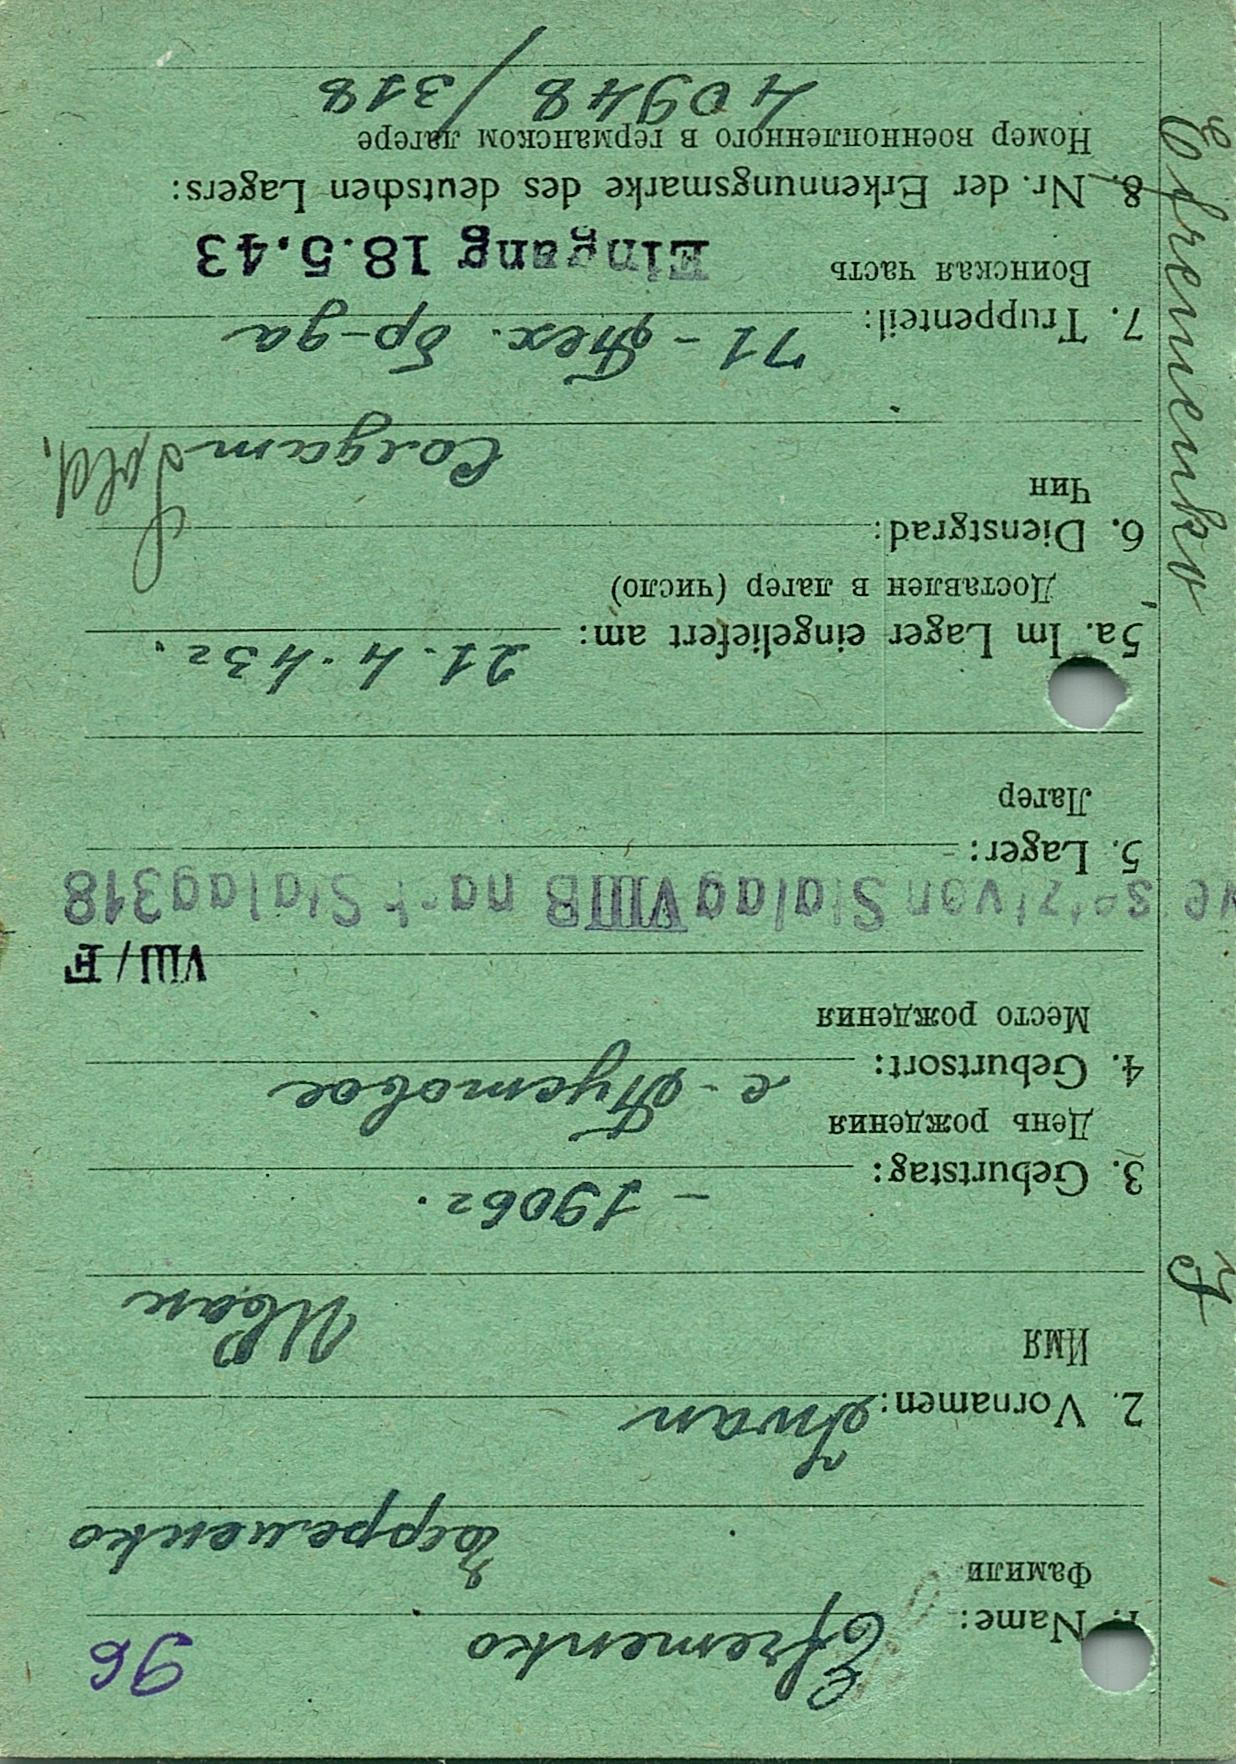 96
1. Name: Efremenko
Фамили
Ефременко
2. Vornamen: Iwan
Имя
Иван
3. Geburtstag: - 1906 г.
День рождения
4. Geburtsort: с-Пустовое
Место рождения
VIII/F
versetzt von Stalag VIIIB nach Stalag 318
5. Lager:
Лагер
5a. Im Lager eingeliefert am: 21.4.43 г.
Доставлен в лагер (число)
6. Dienstgrad:
Чин
Солдат Sold.
7. Truppenteil: 71 - Тех. бр-да
Воинская часть
Eingang 18.5.43
8. Nr. der Erkennungsmarke des deutschen Lagers:
Номер военнопленного в германском лагере
40948/318
Efremenko